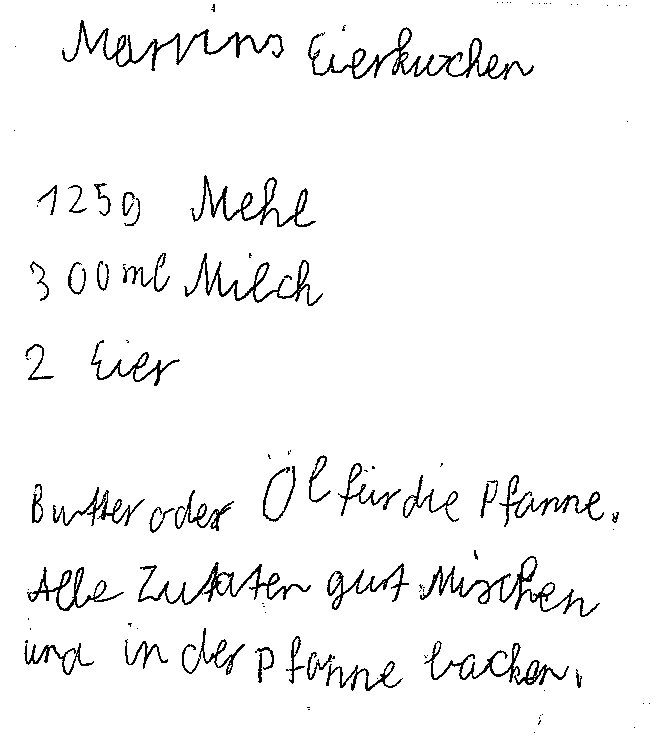 Marvins Eierkuchen
125g Mehl
300ml Milch
2 Eier
Butter oder Öl für die Pfanne.
Alle Zutaten gut Mischen
und in der Pfanne backen.